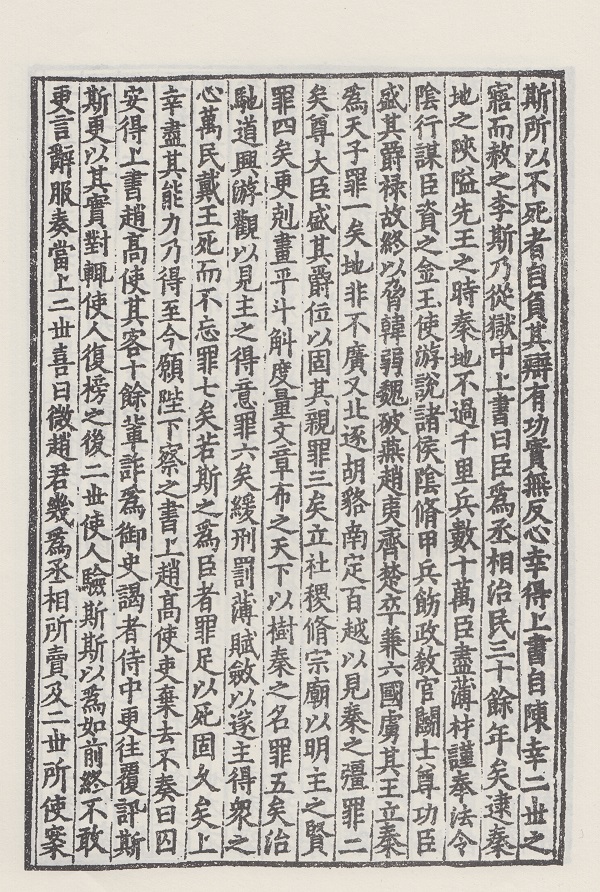 斯所以不死者自負其辯有功實無反心幸得上書自陳幸二世之
寤而赦之李斯乃從獄中上書曰臣爲丞相治民三十餘年矣逮秦
地之陜隘先王之時秦地不過千里兵數十萬臣盡薄材謹奉法令
陰行謀臣資之金玉使游說諸侯陰脩甲兵飭政教官鬬士尊功臣
盛其爵祿故終以脅韓弱魏破燕趙夷齊楚卒兼六國虜其王立秦
爲天子罪一矣地非不廣又北逐胡貉南定百越以見秦之彊罪二
矣尊大臣盛其爵位以固其親罪三矣立社稷脩宗廟以明主之賢
罪四矣更剋畫平斗斛度量文章布之天下以樹秦之名罪五矣治
馳道興游觀以見主之得意罪六矣緩刑罰薄賦斂以遂主得衆之
心萬民戴王死而不忘罪七矣若斯之爲臣者罪足以死固久矣上
幸盡其能力乃得至今願陛下察之書上趙高使吏棄去不奏曰囚
安得上書趙高使其客十餘輩詐爲御史謁者侍中更往覆訊斯
斯更以其實對輒使人復榜之後二世使人驗斯斯以爲如前終不敢
更言辭服奏當上二世喜曰微趙君幾爲丞相所賣及二世所使案